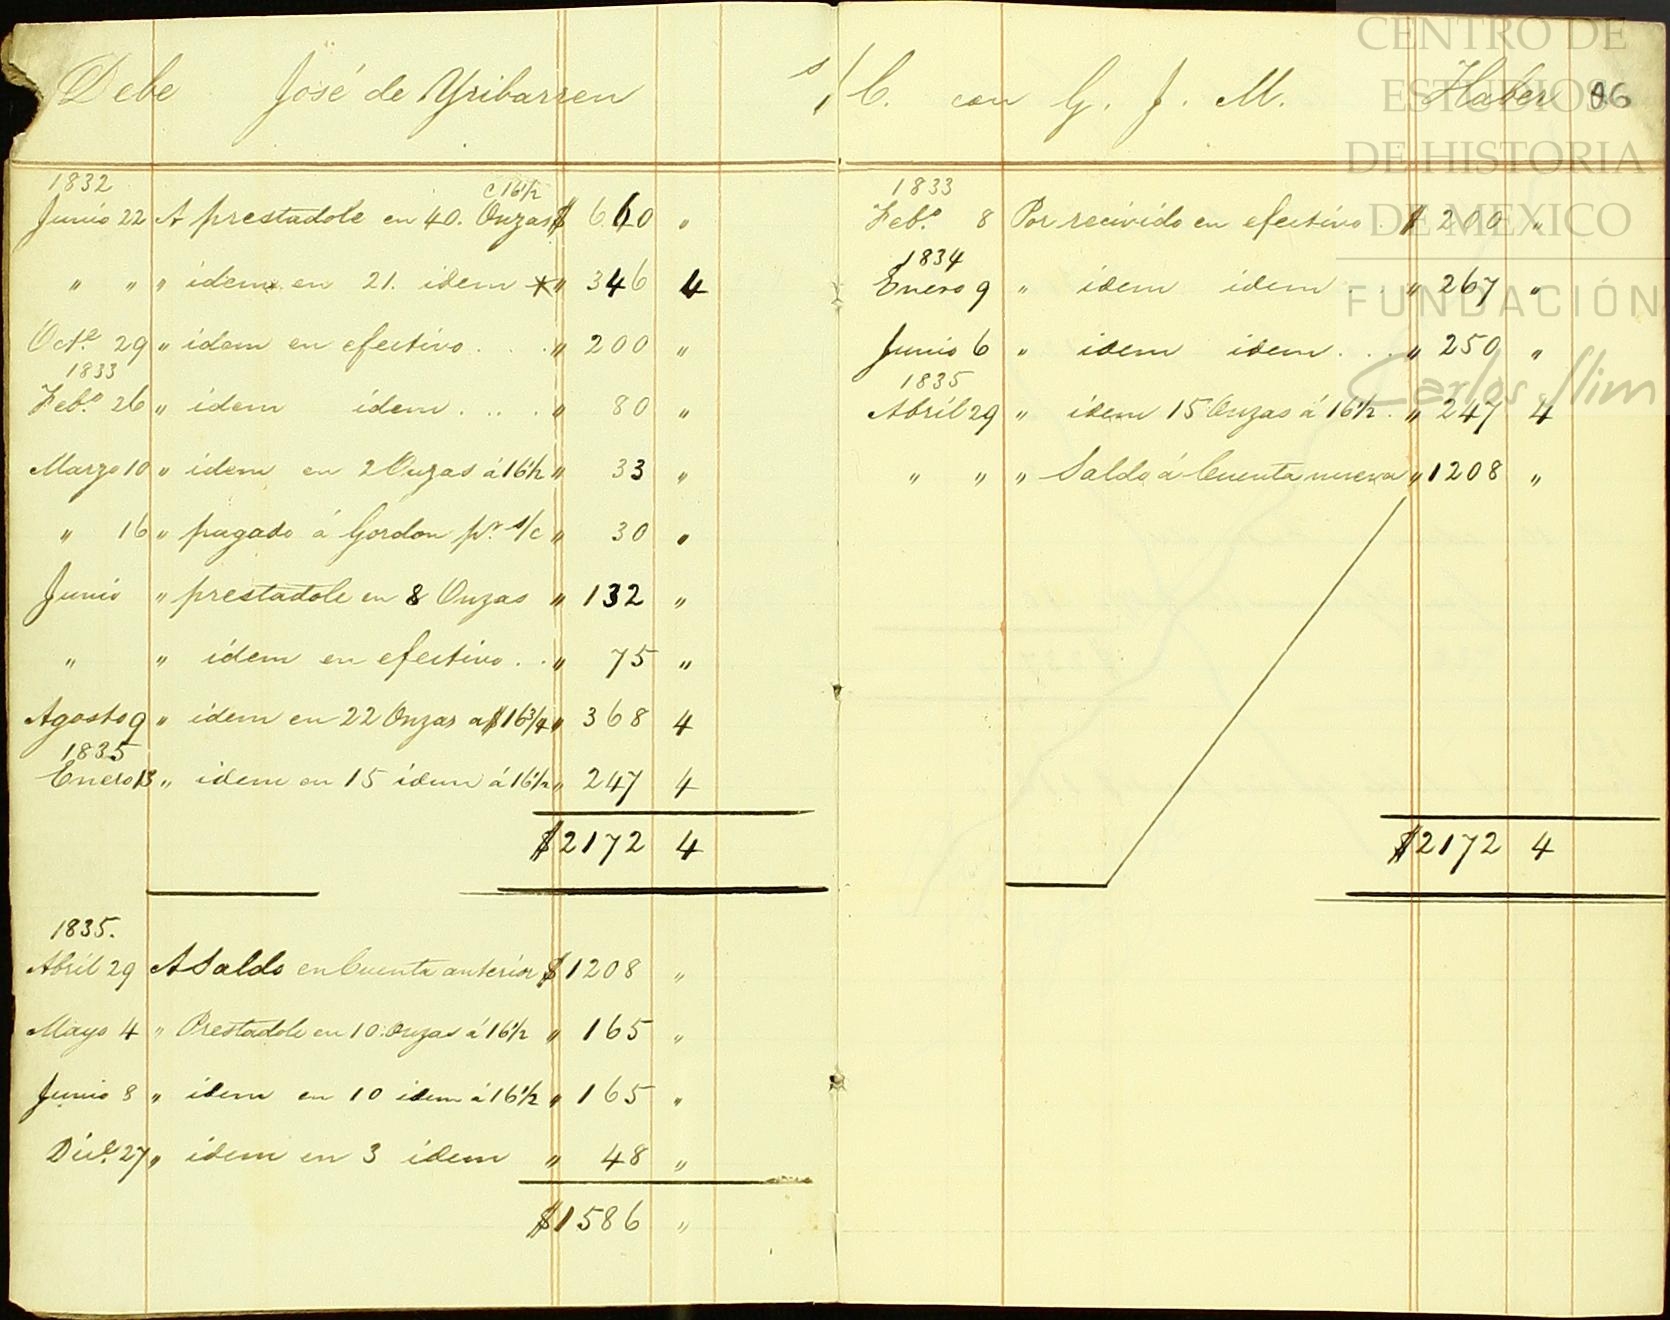 Debe José de Yribarren s/C. con G. J. M. Haber 96
1832
c 16½
Junio 22 A prestadole en 40. Onzas $ 660 "
" " " idem en 21. idem * " 346 4
Octe. 29 " idem en efectivo . . . . " 200 "
1833
Febo. 26 " idem idem . . . . " 80 "
Marzo 10 " idem en 2 Onzas á 16½ " 33 "
" 16 " pagado á Gordon pr. s/c " 30 "
Junio " prestadole en 8 Onzas " 132 "
" " idem en efectivo . . " 75 "
Agosto 9 " idem en 22 Onzas a $16¾ " 368 4
1835
Enero 13 " idem en 15 idem á 16½ " 247 4
$2172 4
1835.
Abril 29 A Saldo en Cuenta anterior $1208 "
Mayo 4 " Prestadole en 10. Onzas á 16½ " 165 "
Junio 8 " idem en 10 idem á 16½ " 165 "
Dice. 27 " idem en 3 idem " 48 "
$1586 "
1833
Febo. 8 Por recivido en efectivo . $ 200 "
1834
Enero 9 " idem idem . . " 267 "
Junio 6 " idem idem . . . " 250 "
1835
Abril 29 " idem 15 Onzas á 16½ . " 247 4
" " " Saldo á Cuenta nueva " 1208 "
$2172 4
CENTRO DE
ESTUDIOS
DE HISTORIA
DE MEXICO
FUNDACIÓN
Carlos Slim